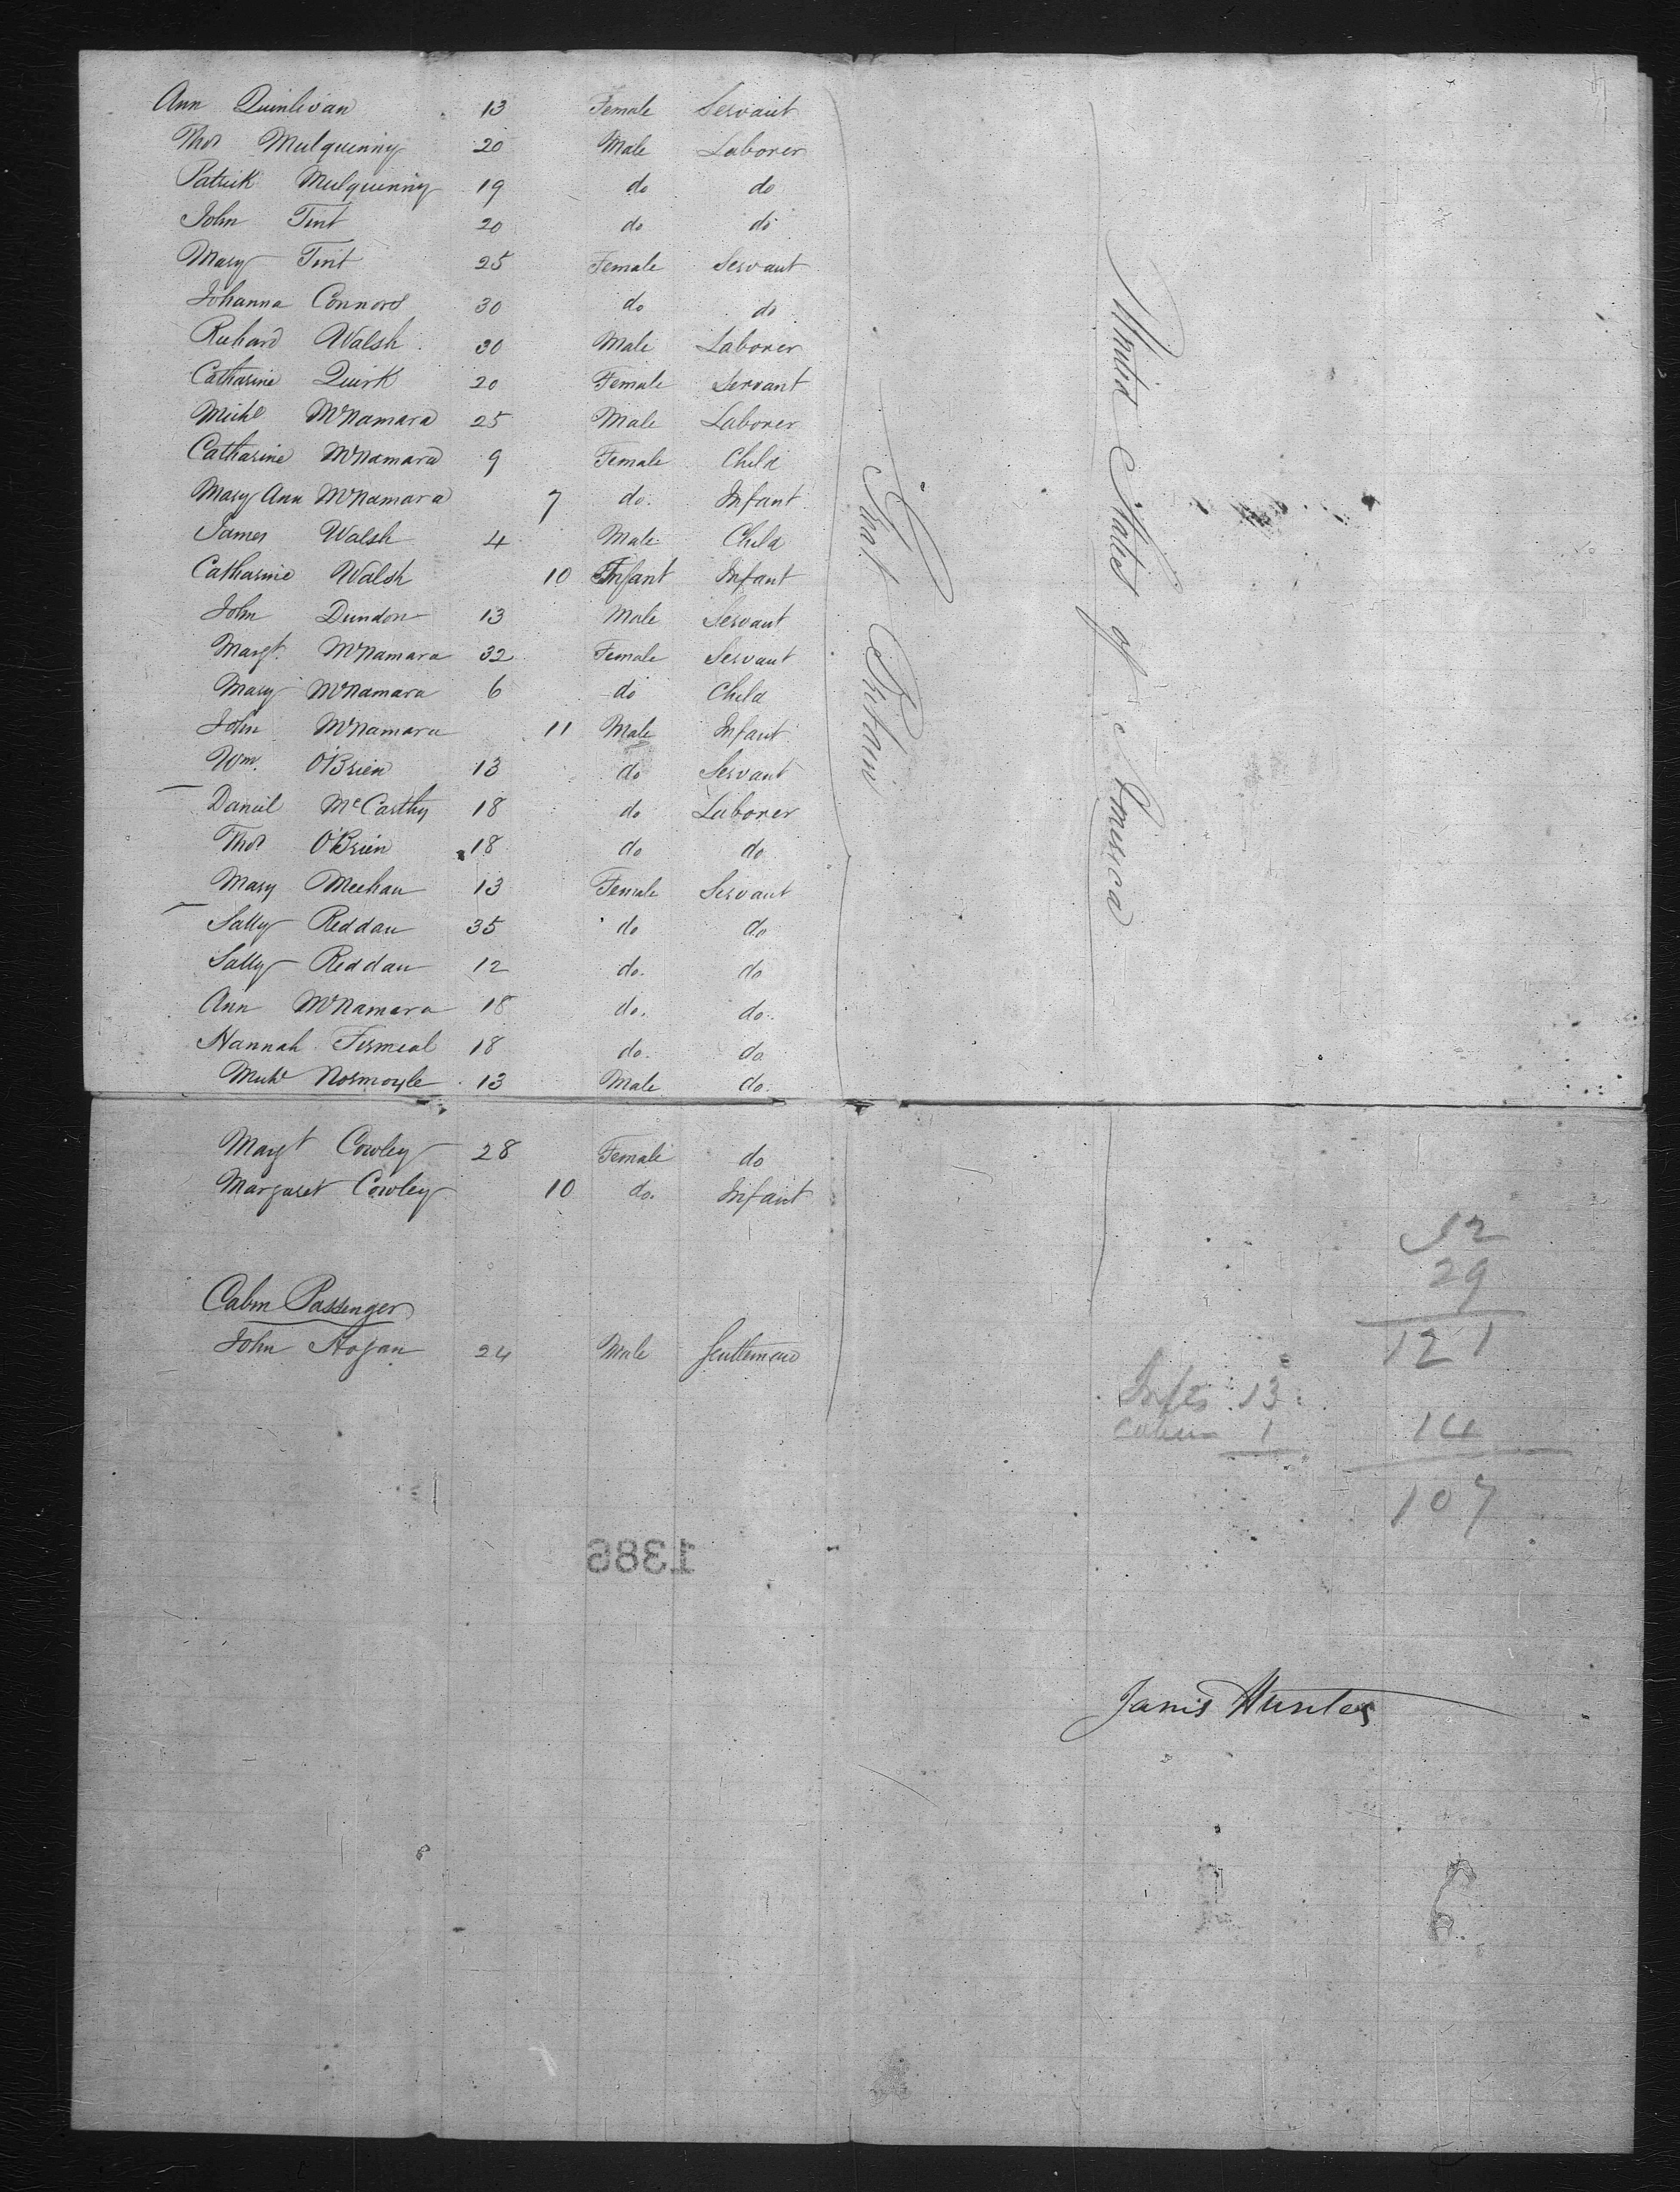 Ann Quinlivan 13 Female Servant
Thos Mulquinny 20 Male Laborer
Patrick Mulquinny 19 do do
John Tint 20 do do
Mary Tint 25 Female Servant
Johanna Connors 30 do do
Richard Walsh 30 Male Laborer
Catharine Quirk 20 Female Servant
Michl McNamara 25 Male Laborer
Catharine McNamara 9 Female Child
Mary Ann McNamara 7 do. Infant
James Walsh 4 Male Child
Catharine Walsh 10 Infant Infant
John Dundon 13 Male Servant
Margt. McNamara 32 Female Servant
Mary McNamara 6 do Child
John McNamara 11 Male Infant
Wm. O'Brien 13 do Servant
Daniel McCarthy 18 do Laborer
Thos O'Brien 18 do do
Mary Meehan 13 Female Servant
Sally Reddan 35 do do
Sally Reddan 12 do. do
Ann McNamara 18 do. do.
Hannah 18 do. do
Michl Normoyle 13 Male do.
Margt Cowley 28 Female do
Margaret Cowley 10 do. Infant
Cabin Passenger
John Hogan 24 Male Gentleman
Britain
United States of America
29
121
Infts 13
Cabin 1 14
107
1386
Hunter